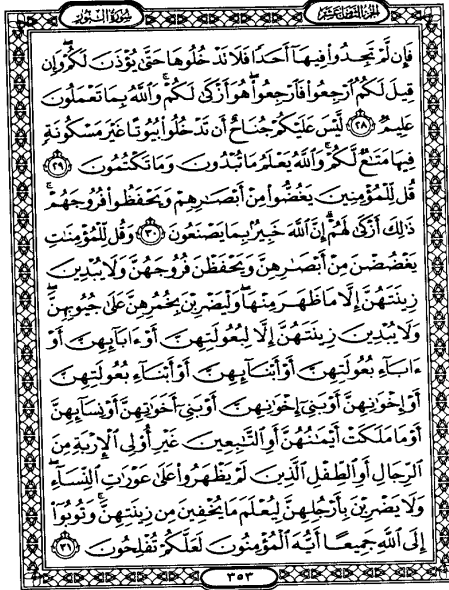 سُورَةُ النُّورِ الجزء الثامن عشر
فَإِن لَّمْ تَجِدُوا۟ فِيهَآ أَحَدًا فَلَا تَدْخُلُوهَا حَتَّىٰ يُؤْذَنَ لَكُمْ ۖ وَإِن
قِيلَ لَكُمُ ٱرْجِعُوا۟ فَٱرْجِعُوا۟ ۖ هُوَ أَزْكَىٰ لَكُمْ ۚ وَٱللَّهُ بِمَا تَعْمَلُونَ
عَلِيمٌ ٢٨ لَّيْسَ عَلَيْكُمْ جُنَاحٌ أَن تَدْخُلُوا۟ بُيُوتًا غَيْرَ مَسْكُونَةٍ
فِيهَا مَتَـٰعٌ لَّكُمْ ۚ وَٱللَّهُ يَعْلَمُ مَا تُبْدُونَ وَمَا تَكْتُمُونَ ٢٩
قُل لِّلْمُؤْمِنِينَ يَغُضُّوا۟ مِنْ أَبْصَـٰرِهِمْ وَيَحْفَظُوا۟ فُرُوجَهُمْ ۚ
ذَٰلِكَ أَزْكَىٰ لَهُمْ ۗ إِنَّ ٱللَّهَ خَبِيرٌۢ بِمَا يَصْنَعُونَ ٣٠ وَقُل لِّلْمُؤْمِنَـٰتِ
يَغْضُضْنَ مِنْ أَبْصَـٰرِهِنَّ وَيَحْفَظْنَ فُرُوجَهُنَّ وَلَا يُبْدِينَ
زِينَتَهُنَّ إِلَّا مَا ظَهَرَ مِنْهَا ۖ وَلْيَضْرِبْنَ بِخُمُرِهِنَّ عَلَىٰ جُيُوبِهِنَّ ۖ
وَلَا يُبْدِينَ زِينَتَهُنَّ إِلَّا لِبُعُولَتِهِنَّ أَوْ ءَابَآئِهِنَّ أَوْ
ءَابَآءِ بُعُولَتِهِنَّ أَوْ أَبْنَآئِهِنَّ أَوْ أَبْنَآءِ بُعُولَتِهِنَّ
أَوْ إِخْوَٰنِهِنَّ أَوْ بَنِىٓ إِخْوَٰنِهِنَّ أَوْ بَنِىٓ أَخَوَٰتِهِنَّ أَوْ نِسَآئِهِنَّ
أَوْ مَا مَلَكَتْ أَيْمَـٰنُهُنَّ أَوِ ٱلتَّـٰبِعِينَ غَيْرِ أُو۟لِى ٱلْإِرْبَةِ مِنَ
ٱلرِّجَالِ أَوِ ٱلطِّفْلِ ٱلَّذِينَ لَمْ يَظْهَرُوا۟ عَلَىٰ عَوْرَٰتِ ٱلنِّسَآءِ ۖ
وَلَا يَضْرِبْنَ بِأَرْجُلِهِنَّ لِيُعْلَمَ مَا يُخْفِينَ مِن زِينَتِهِنَّ ۚ وَتُوبُوٓا۟
إِلَى ٱللَّهِ جَمِيعًا أَيُّهَ ٱلْمُؤْمِنُونَ لَعَلَّكُمْ تُفْلِحُونَ ٣١
٣٥٣